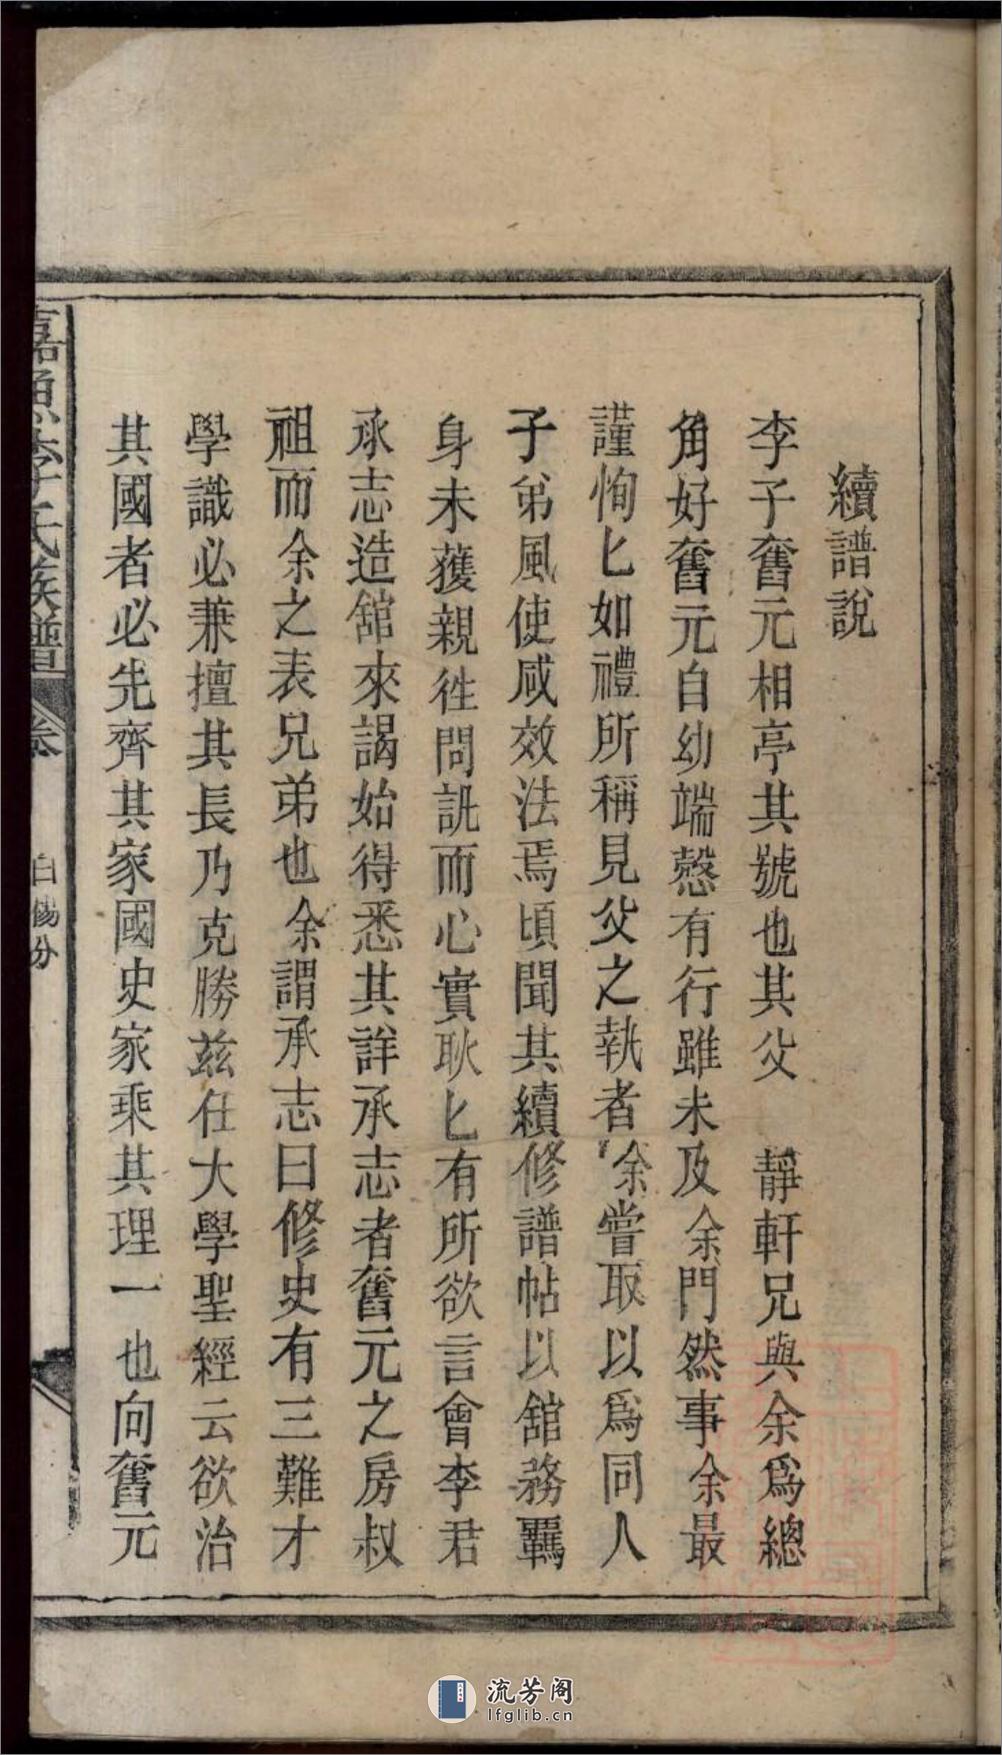 續譜說
李子奮元相亭其號也其父　靜軒兄與余爲總
角好奮元自幼端慤有行雖未及余門然事余最
謹恂匕如禮所稱見父之執者余嘗取以爲同人
子弟風使咸效法焉頃聞其續修譜帖以舘務羈
身未獲親徃問訊而心實耿匕有所欲言會李君
承志造舘來謁始得悉其詳承志者奮元之房叔
祖而余之表兄弟也余謂承志曰修史有三難才
學識必兼擅其長乃克勝兹任大學聖經云欲治
其國者必先齊其家國史家乘其理一也向奮元
嘉魚李氏族譜
卷
流芳阁
lfglib.cn